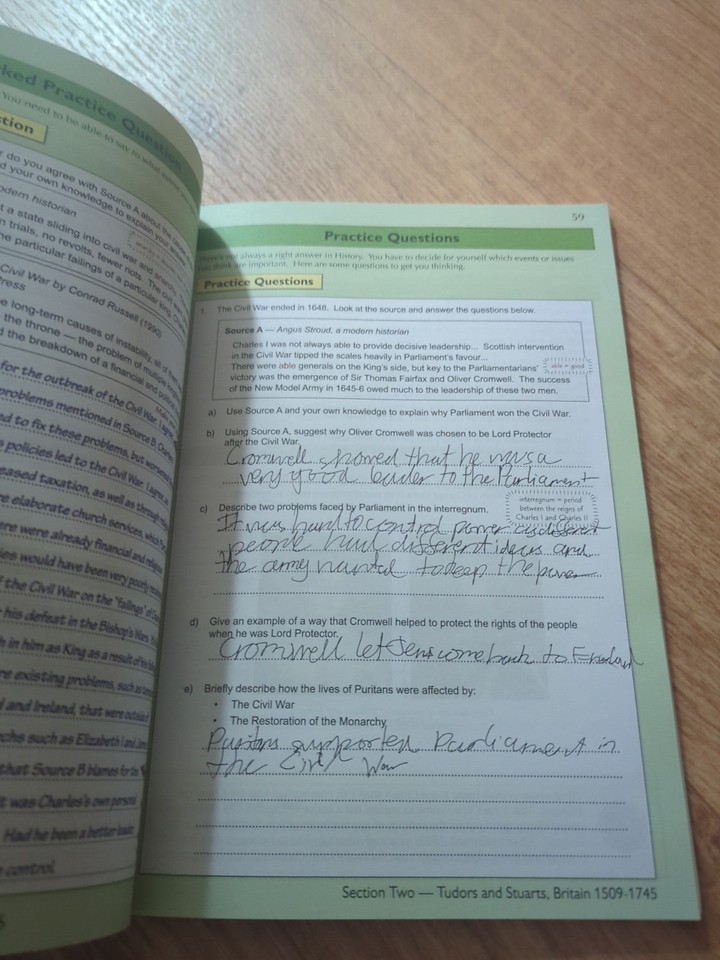 ked Practice Question
You need to be able to say to what
tion
r do you agree with Source A about the
d your own knowledge to explain your
odern historian
t a state sliding into civil war and
n trials, no revolts, fewer riots. The
he particular failings of a particular king,
Civil War by Conrad Russell (1990)
ress
e long-term causes of instability, all of
the throne — the problem of multiple
d the breakdown of a financial and political
for the outbreak of the Civil War. I agree
problems mentioned in Source B, Charles
ed to fix these problems, but worsened
s policies led to the Civil War. I agree
eased taxation, as well as through
re elaborate church services, which
ere were already financial and religious
ies would have been very poorly
f the Civil War on the "failings" of
his defeat in the Bishop's Wars.
h in him as King as a result of
re existing problems, such as
d and Ireland, that were outside
rchs such as Elizabeth I and James
that Source B blames for the
t was Charles's own personal
Had he been a better leader
n control.
59
Practice Questions
There's not always a right answer in History. You have to decide for yourself which events or issues
you think are important. Here are some questions to get you thinking.
Practice Questions
1. The Civil War ended in 1648. Look at the source and answer the questions below.
Source A — Angus Stroud, a modern historian
Charles I was not always able to provide decisive leadership... Scottish intervention
in the Civil War tipped the scales heavily in Parliament's favour...
There were able generals on the King's side, but key to the Parliamentarians'
victory was the emergence of Sir Thomas Fairfax and Oliver Cromwell. The success
of the New Model Army in 1645-6 owed much to the leadership of these two men.
able = good
a) Use Source A and your own knowledge to explain why Parliament won the Civil War.
b) Using Source A, suggest why Oliver Cromwell was chosen to be Lord Protector
after the Civil War.
Cromwell showed that he was a
very good leader to the Parliament
c) Describe two problems faced by Parliament in the interregnum.
interregnum = period
between the reigns of
Charles I and Charles II
It was hard to control power as different
people had different ideas and
the army wanted to keep the power
d) Give an example of a way that Cromwell helped to protect the rights of the people
when he was Lord Protector.
Cromwell let Jews come back to England
e) Briefly describe how the lives of Puritans were affected by:
• The Civil War
• The Restoration of the Monarchy
Puritans supported Parliament in
the Civil War
Section Two — Tudors and Stuarts, Britain 1509-1745